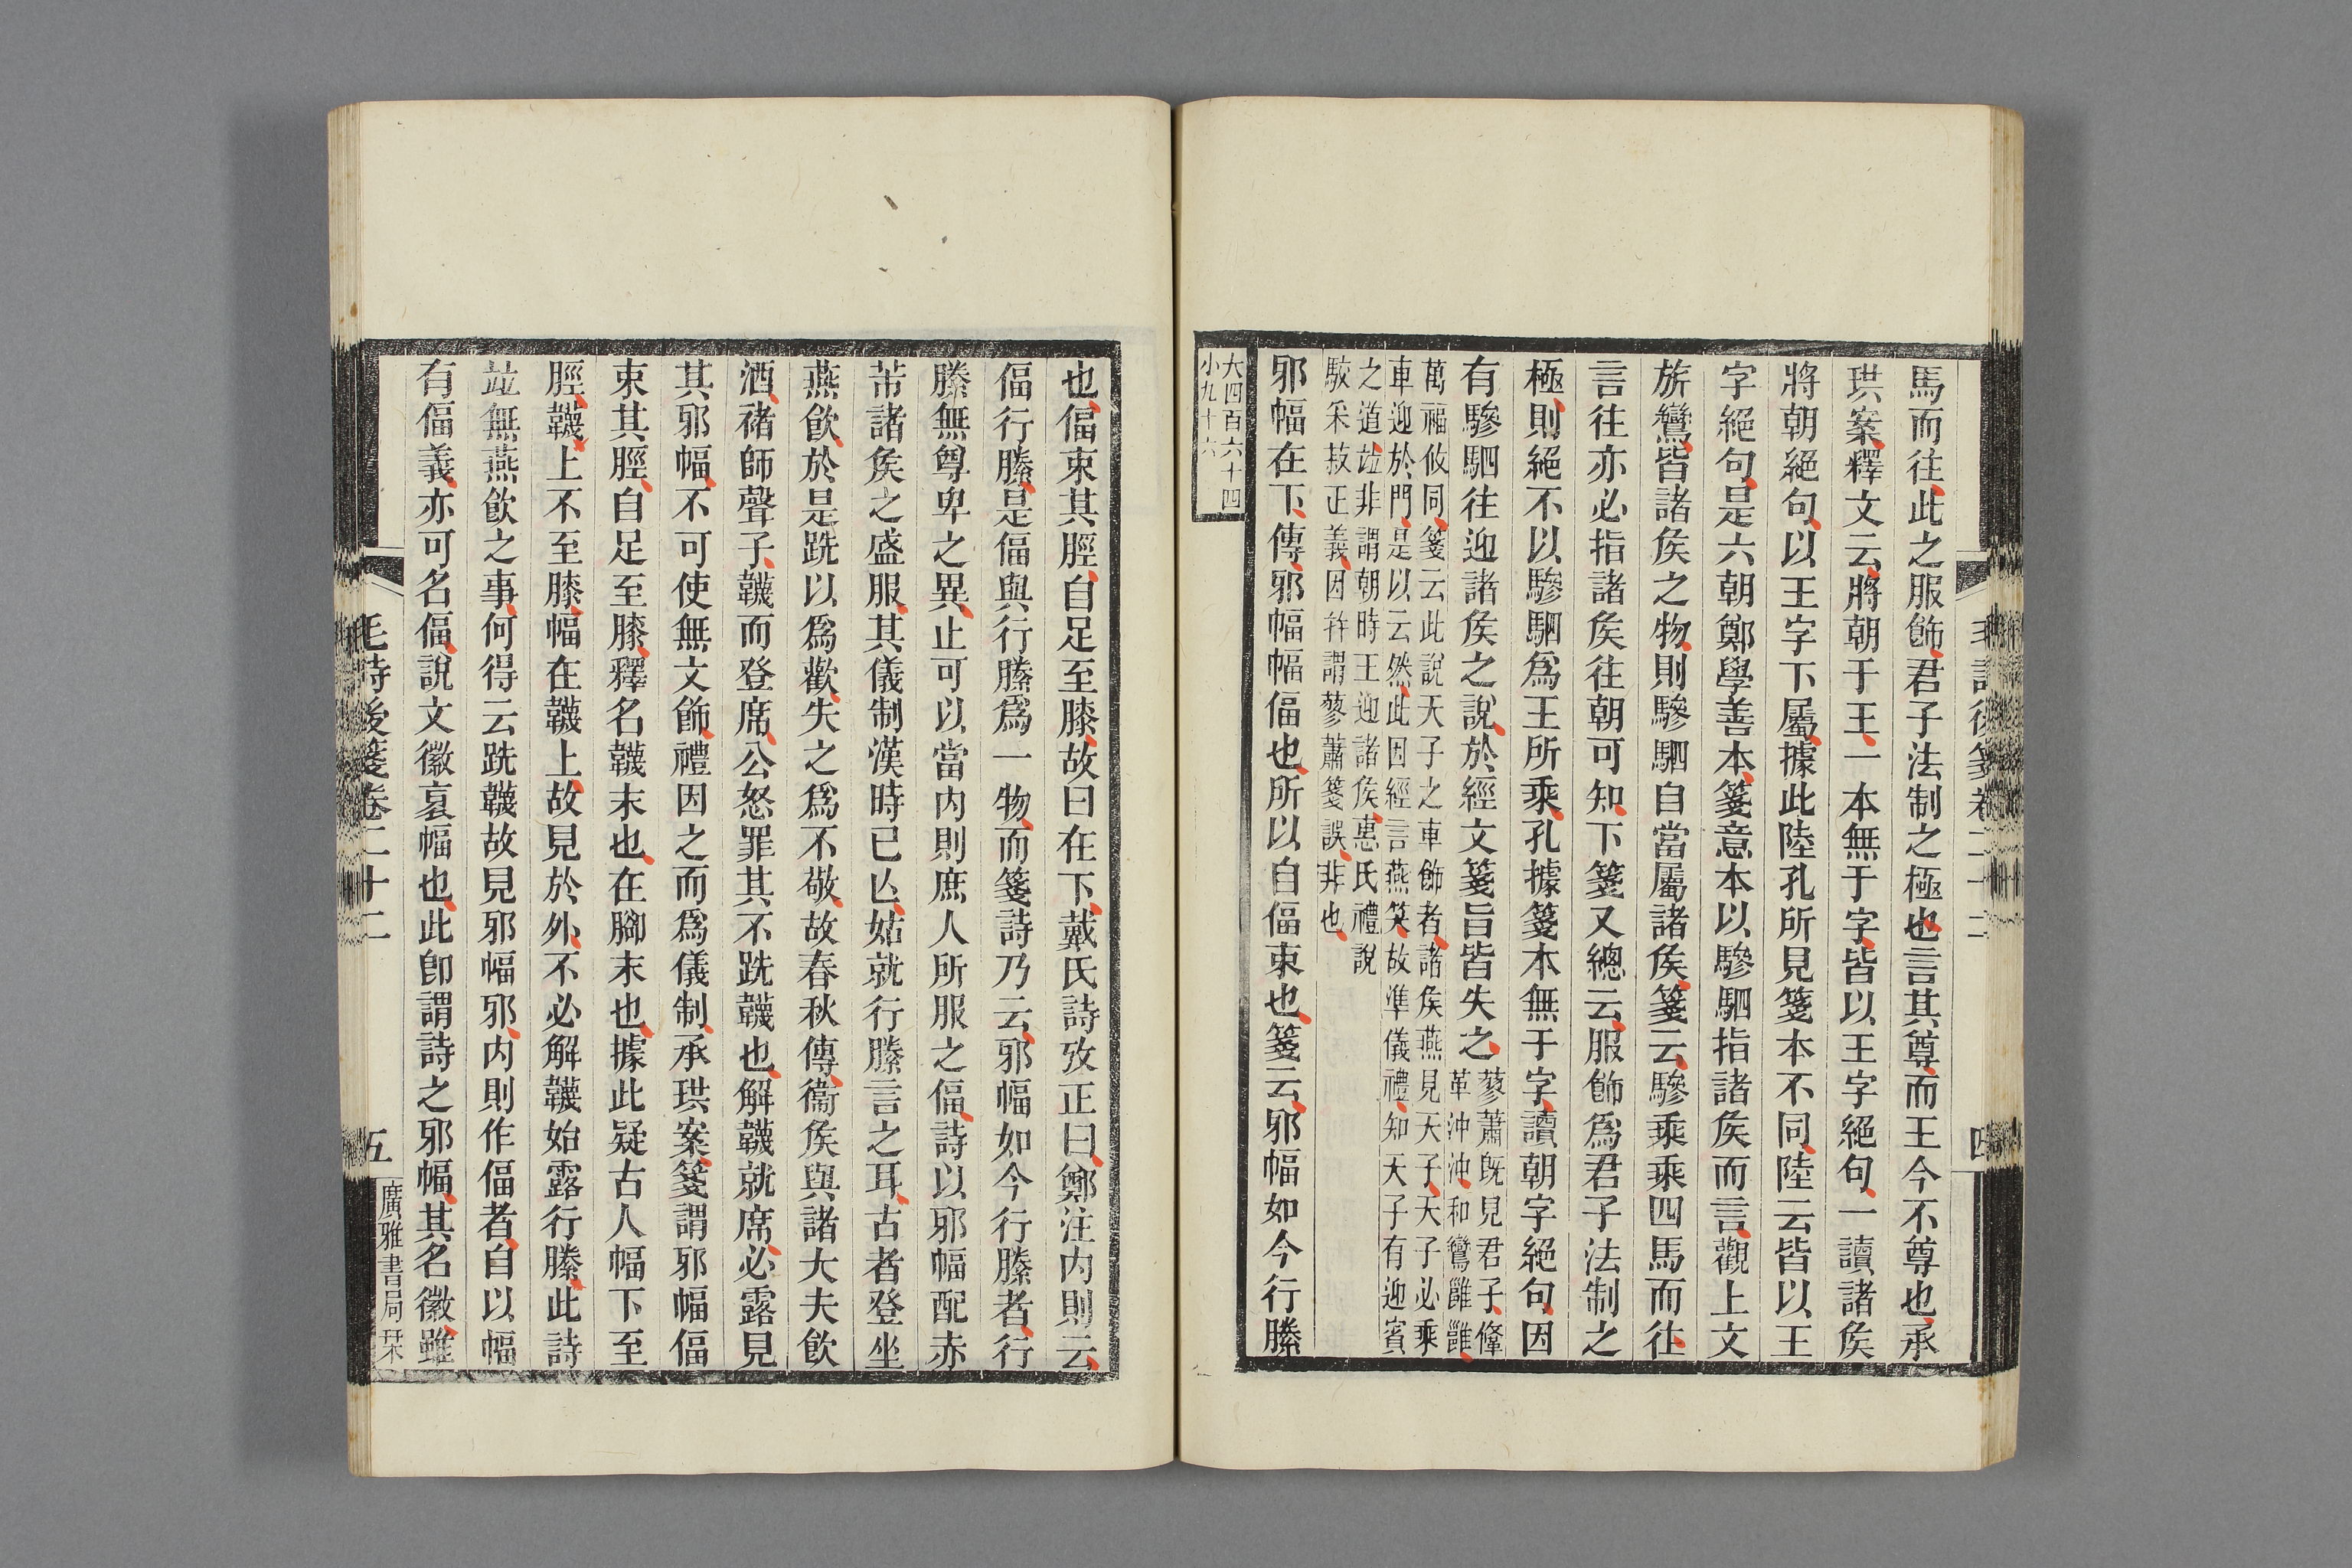 毛詩後箋卷二十二
四
馬而往此之服飾君子法制之極也言其尊而王今不尊也承
珙案釋文云將朝于王一本無于字皆以王字絕句一讀諸矦
將朝絕句以王字下屬據此陸孔所見箋本不同陸云皆以王
字絕句是六朝鄭學善本箋意本以驂駟指諸矦而言觀上文
旂鸞皆諸矦之物則驂駟自當屬諸矦箋云驂乘乘四馬而往
言往亦必指諸矦往朝可知下箋又總云服飾爲君子法制之
極則絕不以驂駟爲王所乘孔據箋本無于字讀朝字絕句因
有驂駟往迎諸矦之說於經文箋旨皆失之蓼蕭旣見君子鞗
革沖沖和鸞雝雝
萬福攸同箋云此說天子之車飾者諸矦燕見天子天子必乘
車迎於門是以云然此因經言燕笑故準儀禮知天子有迎賓
之道竝非謂朝時王迎諸矦惠氏禮說
駮采菽正義因幷謂蓼蕭箋誤非也
邪幅在下傳邪幅幅偪也所以自偪束也箋云邪幅如今行縢
大四百六十四
小九十六
也偪束其脛自足至膝故曰在下戴氏詩攷正曰鄭注内則云
偪行縢是偪與行縢爲一物而箋詩乃云邪幅如今行縢者行
縢無尊卑之異止可以當内則庶人所服之偪詩以邪幅配赤
芾諸矦之盛服其儀制漢時已亾姑就行縢言之耳古者登坐
燕飮於是跣以爲歡失之爲不敬故春秋傳衞矦與諸大夫飮
酒褚師聲子韤而登席公怒罪其不跣韤也解韤就席必露見
其邪幅不可使無文飾禮因之而爲儀制承珙案箋謂邪幅偪
束其脛自足至膝釋名韤末也在腳末也據此疑古人幅下至
脛韤上不至膝幅在韤上故見於外不必解韤始露行縢此詩
竝無燕飮之事何得云跣韤故見邪幅邪内則作偪者自以幅
有偪義亦可名偪說文徽衺幅也此卽謂詩之邪幅其名徽雖
毛詩後箋卷二十二
五
廣雅書局栞